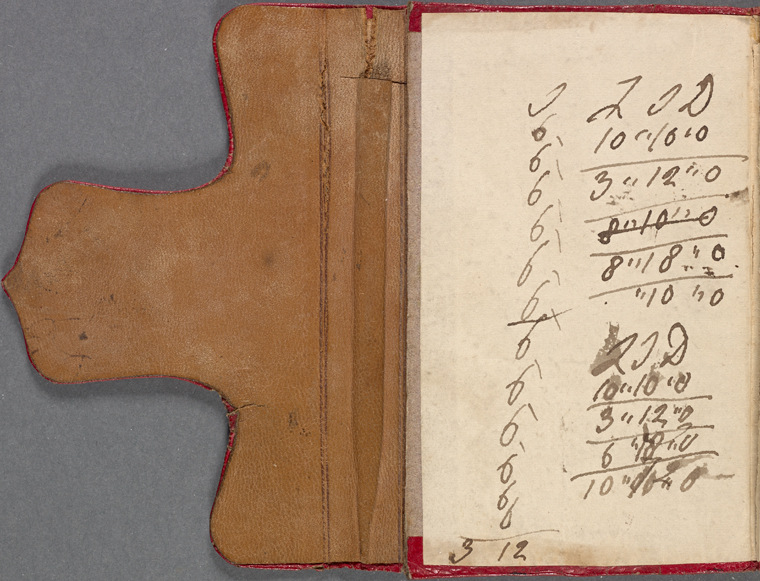 S
6
6
6
6
6
6
6
6
6
6
6
6
3 12
L S D
10"10"0
3"12"0
8"10"0
8"18"0
"10"0
L S D
10"10"0
3"12"0
6"18"0
10"10"0